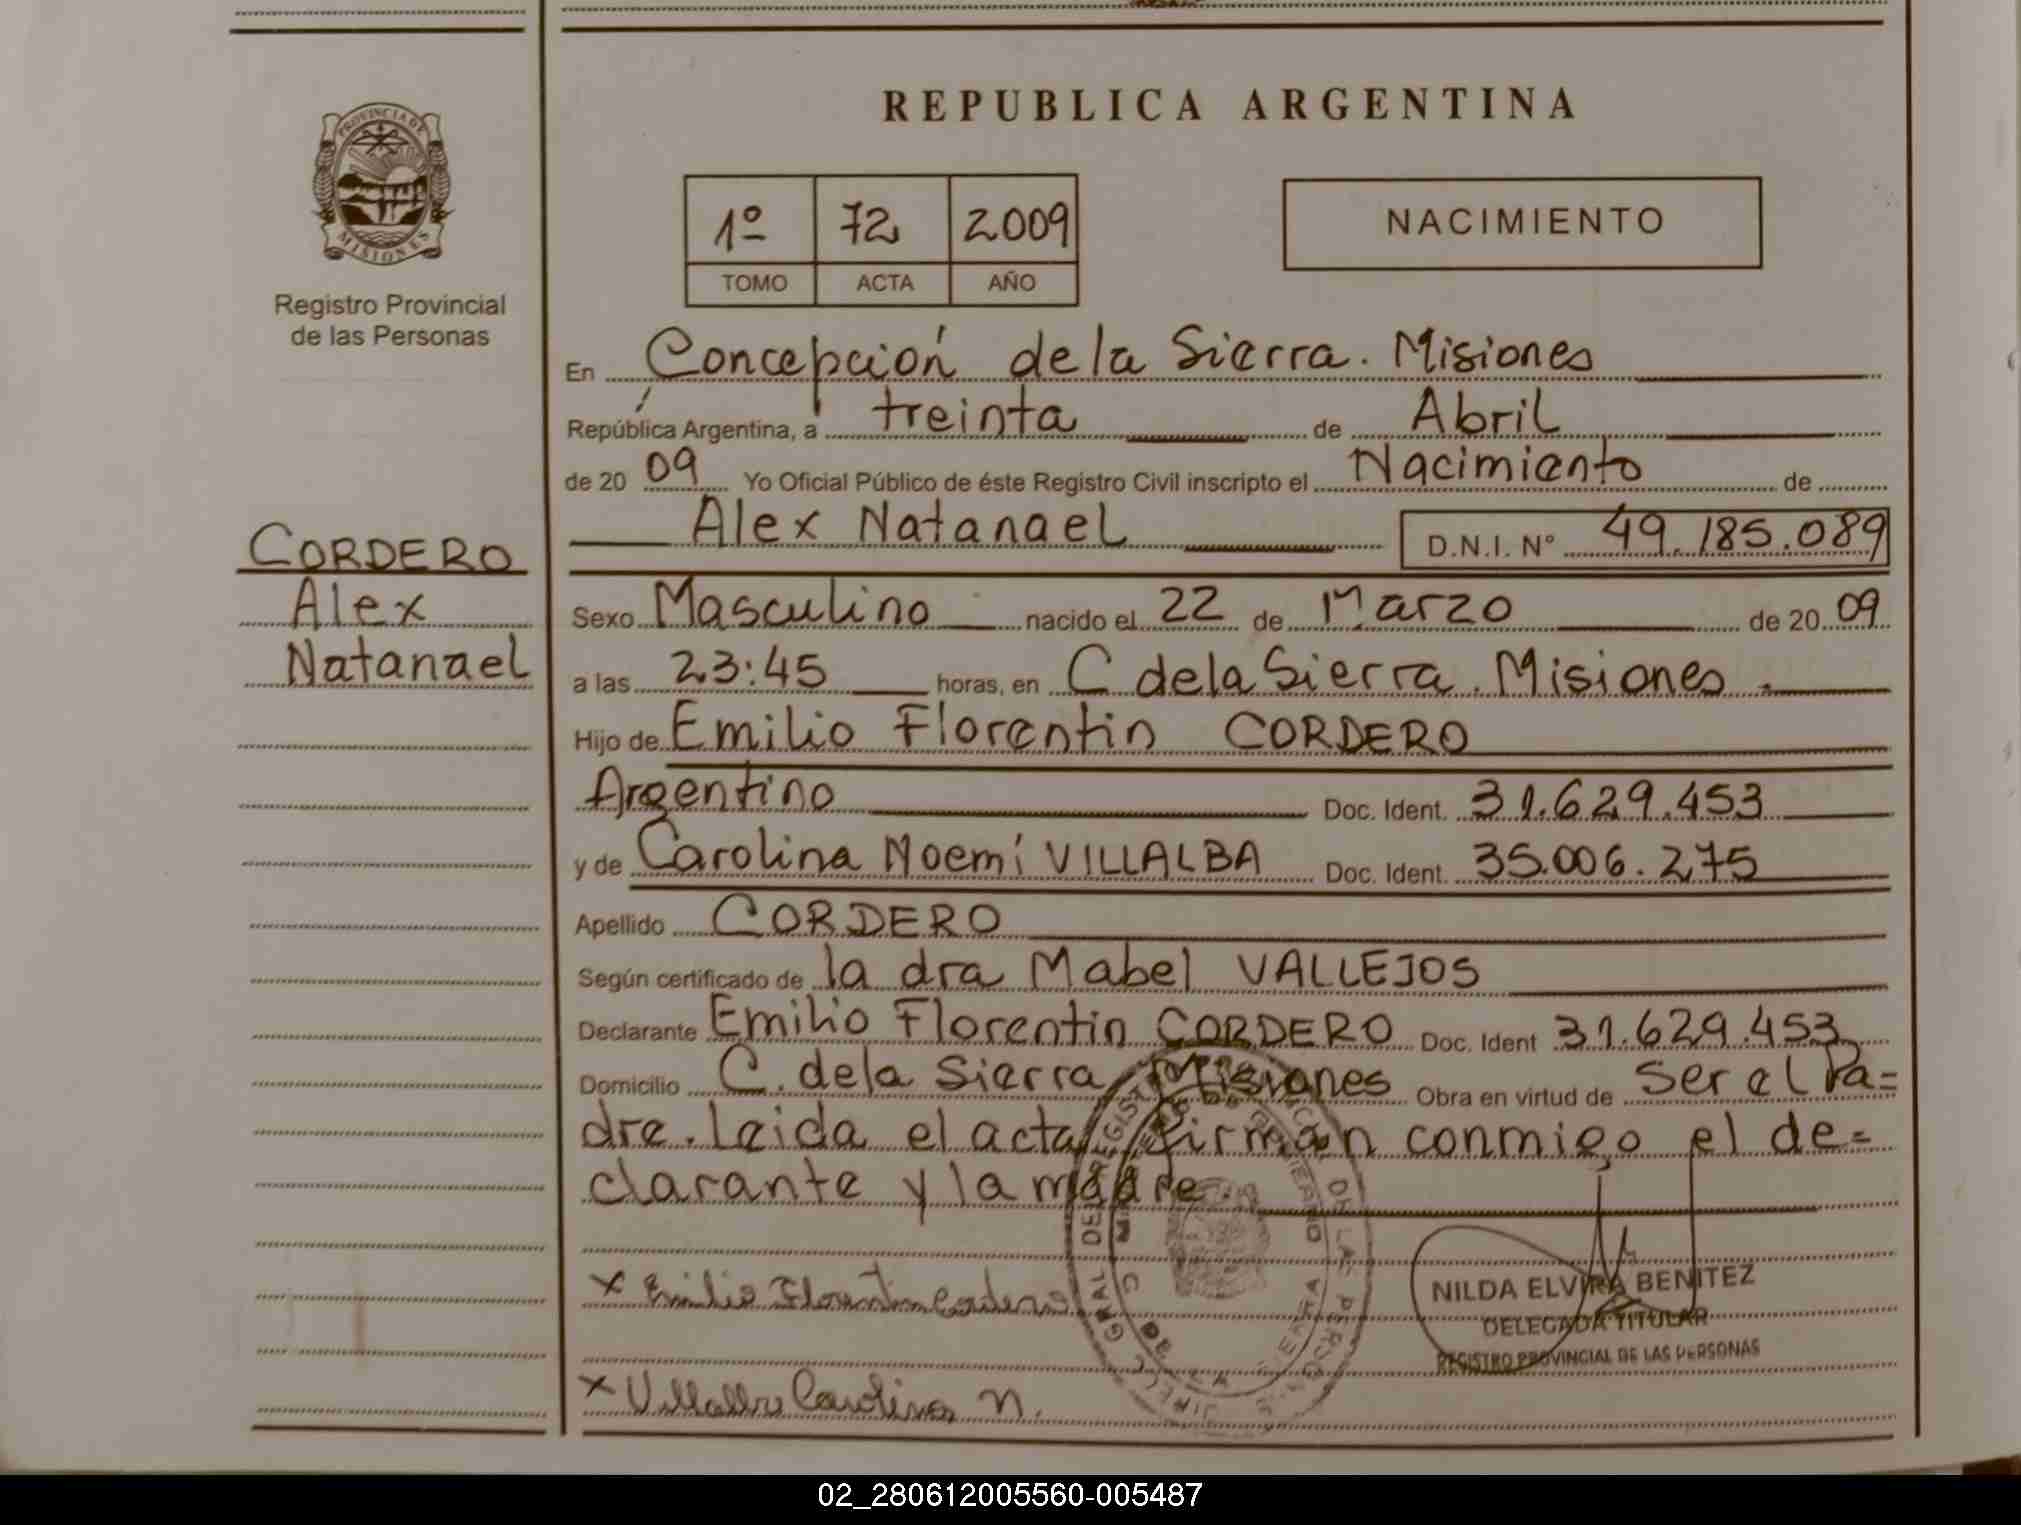 REPUBLICA ARGENTINA
PROVINCIA DE
MISIONES
Registro Provincial
de las Personas
1º 72 2009
TOMO ACTA AÑO
NACIMIENTO
En Concepción de la Sierra. Misiones
República Argentina, a treinta de Abril
de 20 09 Yo Oficial Público de éste Registro Civil inscripto el Nacimiento de
Alex Natanael D.N.I. Nº 49.185.089
CORDERO
Alex
Natanael
Sexo Masculino nacido el 22 de Marzo de 20 09
a las 23:45 horas, en C de la Sierra. Misiones.
Hijo de Emilio Florentin CORDERO
Argentino Doc. Ident. 31.629.453
y de Carolina Noemí VILLALBA Doc. Ident. 35.006.275
Apellido CORDERO
Según certificado de la dra Mabel VALLEJOS
Declarante Emilio Florentin CORDERO Doc. Ident 31.629.453
Domicilio C. de la Sierra Misiones Obra en virtud de Ser el Pa=
dre. Leida el acta, firman conmigo el de=
clarante y la madre.
x Emilio Florentin Cordero
x Villalba Carolina N.
NILDA ELVIRA BENITEZ
DELEGADA TITULAR
REGISTRO PROVINCIAL DE LAS PERSONAS
02_280612005560-005487